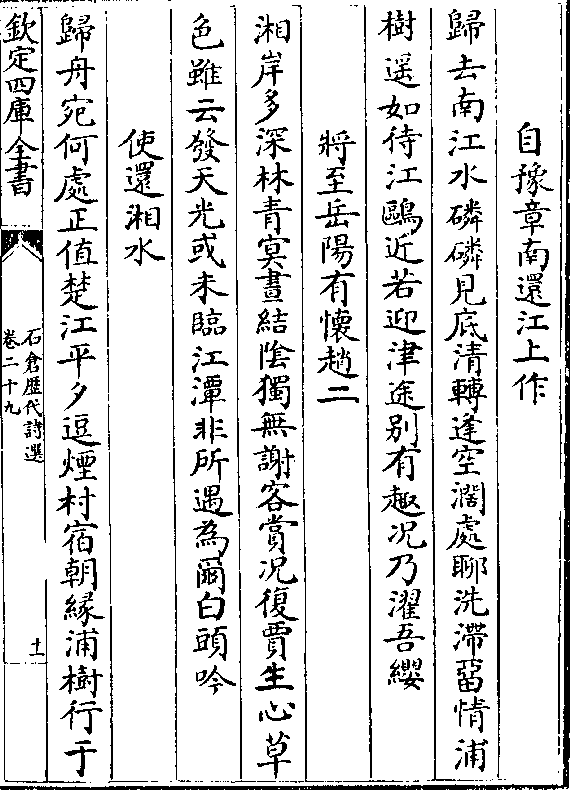 自豫章南還江上作
歸去南江水磷磷見底清轉逢空濶處聊洗滯留情浦
樹遥如待江鷗近若迎津途别有趣况乃濯吾纓
將至岳陽有懷趙二
湘岸多深林青冥晝結陰獨無謝客賞况復賈生心草
色雖云發天光或未臨江潭非所遇為爾白頭吟
使還湘水
歸舟宛何處正值楚江平夕逗煙村宿朝緣浦樹行于
欽定四庫全書
石倉歴代詩選
卷二十九
十一